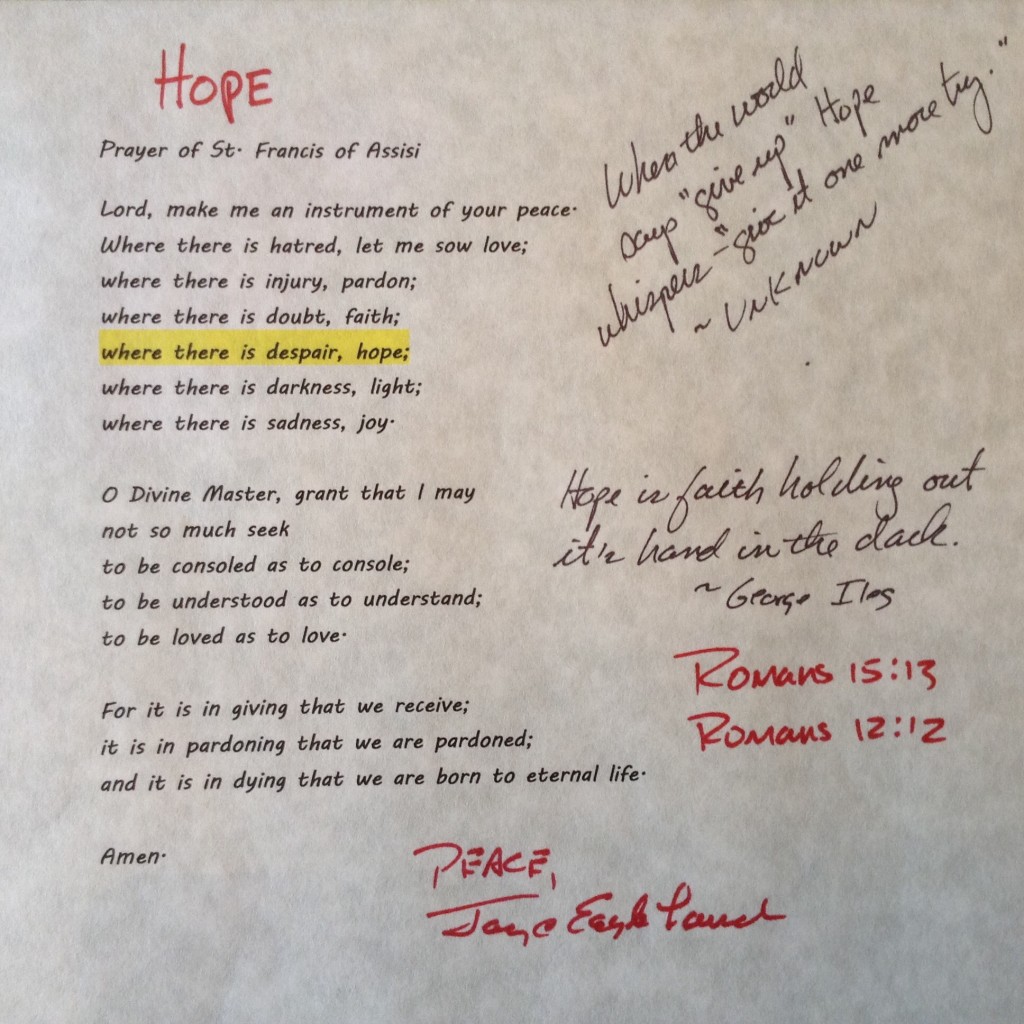 HOPE
Prayer of St. Francis of Assisi
Lord, make me an instrument of your peace.
Where there is hatred, let me sow love;
where there is injury, pardon;
where there is doubt, faith;
where there is despair, hope;
where there is darkness, light;
where there is sadness, joy.
O Divine Master, grant that I may
not so much seek
to be consoled as to console;
to be understood as to understand;
to be loved as to love.
For it is in giving that we receive;
it is in pardoning that we are pardoned;
and it is in dying that we are born to eternal life.
Amen.
When the world
says "give up" Hope
whispers - "give it one more try."
~ Unknown
Hope is faith holding out
it's hand in the dark.
~ George Iles
Romans 15:13
Romans 12:12
PEACE,
Eagle